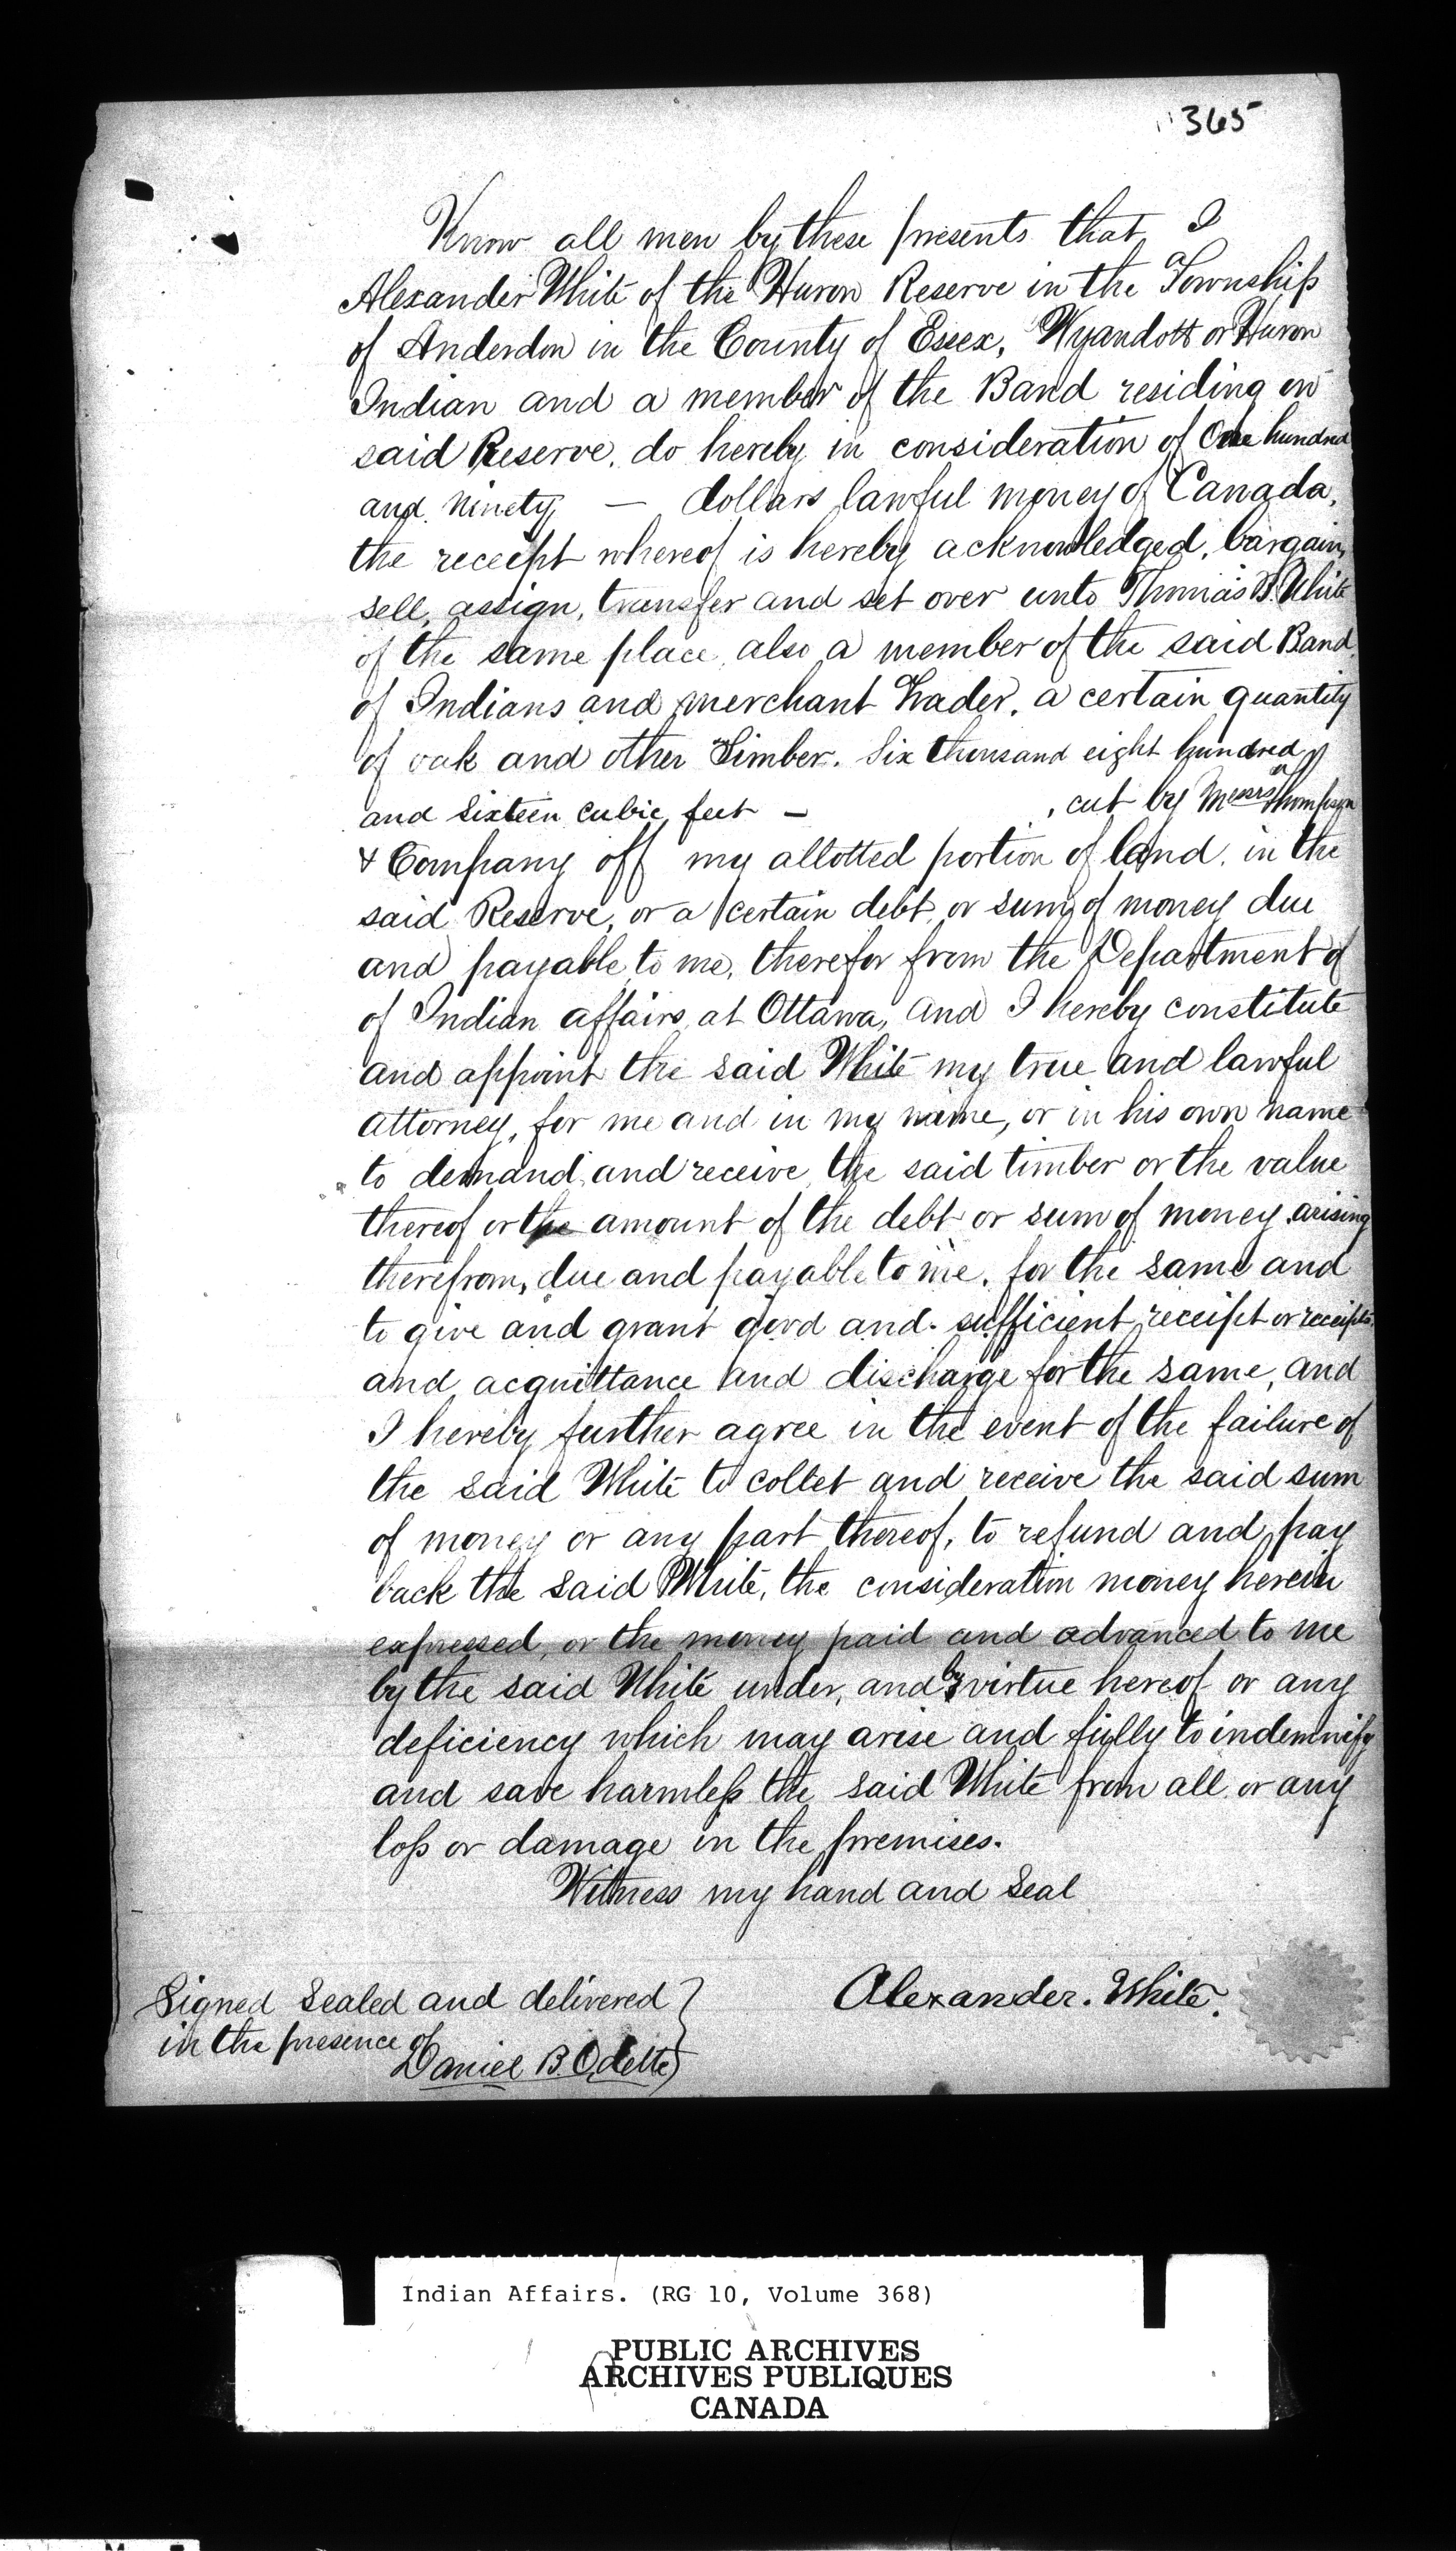 365
Know all men by these presents that I
Alexander White of the Huron Reserve in the Township
of Anderdon in the County of Essex, Wyandott or Huron
Indian and a member of the Band residing on
said Reserve, do hereby in consideration of One hundred
and ninety — dollars lawful money of Canada,
the receipt whereof is hereby acknowledged, bargain,
sell, assign, transfer and set over unto Thomas B. White
of the same place, also a member of the said Band
of Indians and merchant trader, a certain quantity
of oak and other timber. Six thousand eight hundred
and sixteen cubic feet — , cut by Messrs Thompson
& Company off my allotted portion of land, in the
said Reserve, or a certain debt or sum of money due
and payable to me, therefor from the Department of
of Indian affairs at Ottawa, and I hereby constitute
and appoint the said White my true and lawful
attorney, for me and in my name, or in his own name
to demand and receive the said timber or the value
thereof or the amount of the debt or sum of money arising
therefrom, due and payable to me, for the same and
to give and grant good and sufficient receipt or receipts,
and acquittance and discharge for the same, and
I hereby further agree in the event of the failure of
the said White to collet and receive the said sum
of money or any part thereof, to refund and pay
back the said White, the consideration money herein
expressed, or the money paid and advanced to me
by the said White under, and by virtue hereof or any
deficiency which may arise and fully to indemnify
and save harmless the said White from all or any
loss or damage in the premises.
Witness my hand and Seal
Signed Sealed and delivered
in the presence of
Daniel B. Odette
Alexander. White.
Indian Affairs. (RG 10, Volume 368)
PUBLIC ARCHIVES
ARCHIVES PUBLIQUES
CANADA